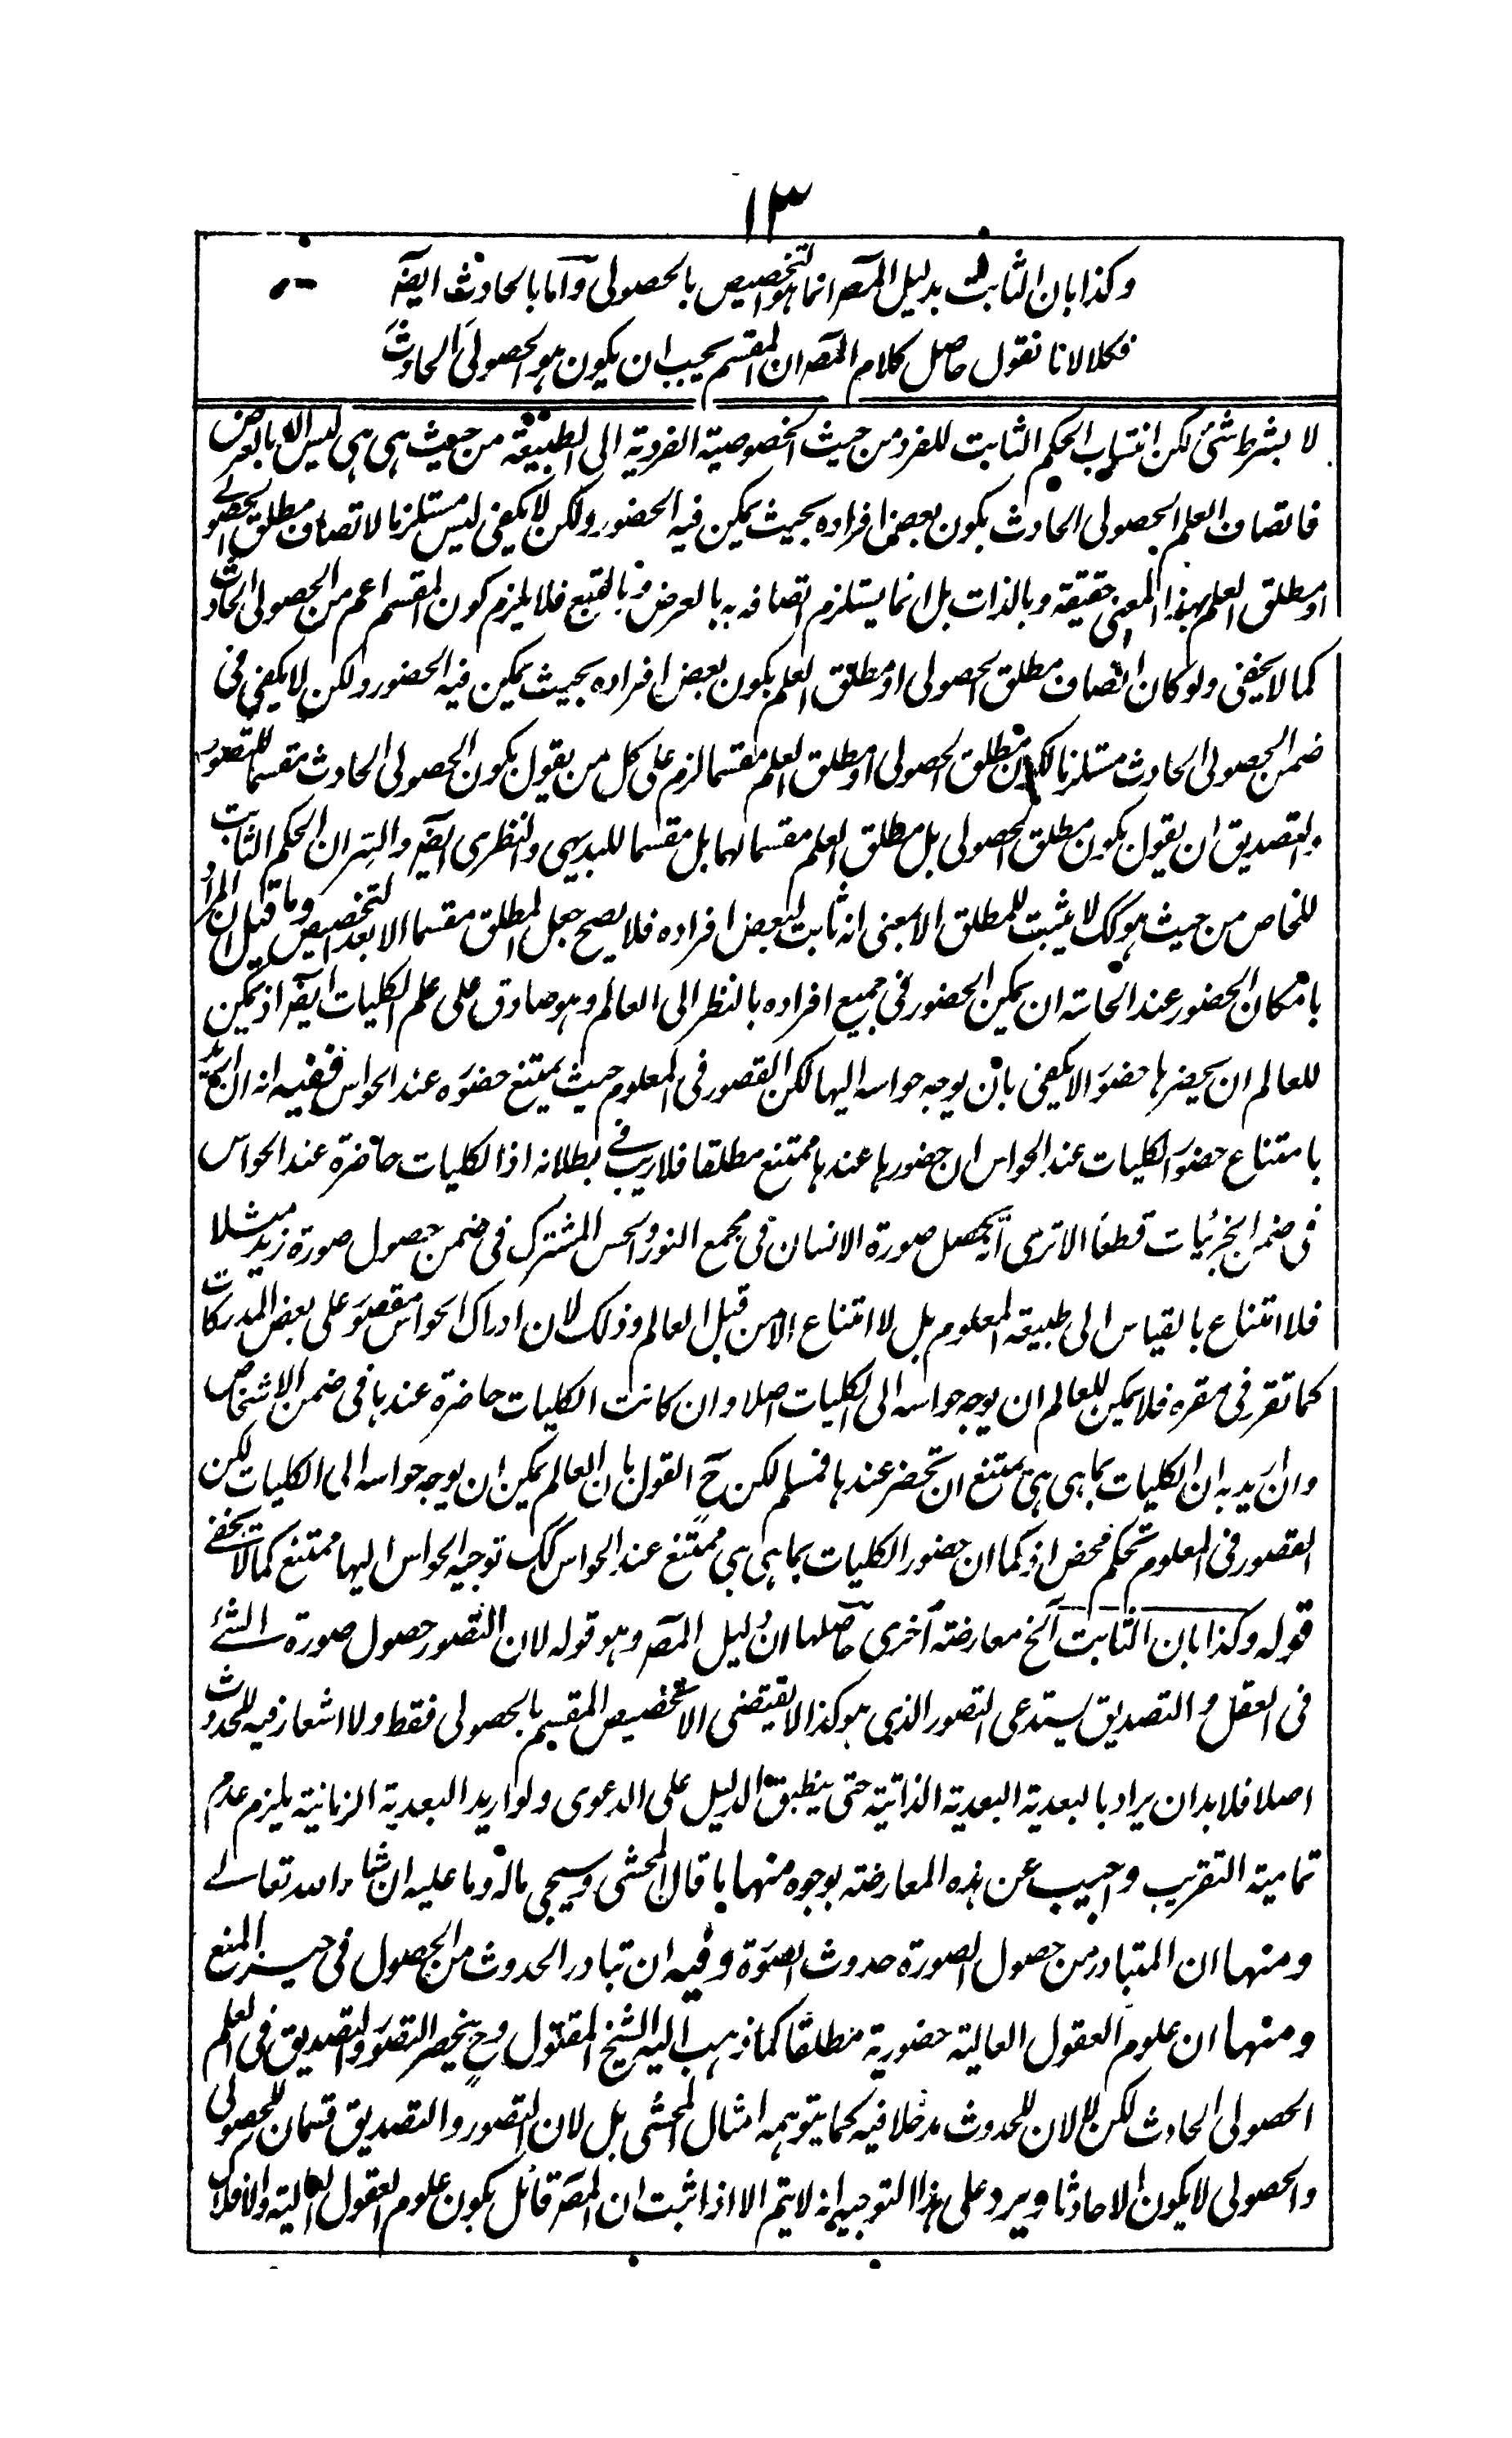 ١٣
وكذا بان الثابت بدليل المصـ انما هو التخصيص بالحصولى وآما بالحادث ايضـ
فكلا لانا نقول حاصل كلام المصـ ان المقسم يجب ان يكون هو الحصولى الحادث
لا بشرط شئ لكن انتساب الحكم الثابت للفرد من حيث الخصوصية الفردية الى الطبيعة من حيث هى هى ليس الا بالعرض
فاتصاف العلم الحصولى الحادث بكون بعض افراده بحيث يمكن فيه الحضور ولكن لا يكفى ليس مستلزما لاتصاف مطلق الحصولے
او مطلق العلم بهذا المعنى حقيقة وبالذات بل انما يستلزم اتصافه به بالعرض وبالتبع فلا يلزم كون المقسم اعم من الحصولى الحادث
كما لا يخفى ولو كان اتصاف مطلق الحصولى او مطلق العلم بكون بعض افراده بحيث يمكن فيه الحضور ولكن لا يكفي فى
ضمن الحصولى الحادث مستلزما لكون مطلق الحصولى او مطلق العلم مقسما لزم على كل من يقول بكون الحصولى الحادث مقسما للتصور
والتصديق ان يقول بكون مطلق الحصولى بل مطلق العلم مقسما لهما بل مقسما للبديهى والنظرى ايضـ والسر ان الحكم الثابت
للخاص من حيث هو كك لا يثبت للمطلق الا بمعنى انه ثابت لبعض افراده فلا يصح جعل المطلق مقسما الا بعد التخصيص وما قيل ان المراد
بامكان الحضور عند الحاسة ان يمكن الحضور فى جميع افراده بالنظر الى العالم وهو صادق على علم الكليات ايضـ اذ يمكن
للعالم ان يحضرها حضورا لا يكفى بان يوجه حواسه اليها لكن القصور فى المعلوم حيث يمتنع حضوره عند الحواس ففيه انه ان اريد
بامتناع حضور الكليات عند الحواس ان حضورها عندها ممتنع مطلقا فلا ريب فے بطلانه اذ الكليات حاضرة عند الحواس
فى ضمن الجزئيات قطعا الا ترى انه يحصل صورة الانسان فى مجمع النور والحس المشترك فى ضمن حصول صورة زيد مثلا
فلا امتناع بالقياس الى طبيعة المعلوم بل لا امتناع الا من قبل العالم وذلك لان ادراك الحواس مقصور على بعض المدركات
كما تقرر فى مقره فلا يمكن للعالم ان يوجه حواسه الى الكليات اصلا وان كانت الكليات حاضرة عندها فى ضمن الاشخاص
وان اريد به ان الكليات بما هى هى يمتنع ان تحضر عندها فمسلم لكن حٍ القول بان العالم يمكن ان يوجه حواسه الى الكليات لكن
القصور فى المعلوم تحكم محض اذ كما ان حضور الكليات بما هى هى ممتنع عند الحواس كك توجيه الحواس اليها ممتنع كما لا يخفے
قوله وكذا بان الثابت آلخ معارضة اخرى حاصلها ان دليل المصـ وهو قوله لان التصور حصول صورة الشئے
فى العقل والتصديق يستدعى التصور الذى هو كذا لا يقتضى الا تخصيص المقسم بالحصولى فقط ولا اشعار فيه للحدوث
اصلا فلا بد ان يراد بالبعدية البعدية الذاتية حتى ينطبق الدليل على الدعوى ولو اريد البعدية الزمانية يلزم عدم
تمامية التقريب واجيب عن هذه المعارضة بوجوه منها ما قال المحشى وسيجى ما له وما عليه ان شاء الله تعالے
ومنها ان المتبادر من حصول الصورة حدوث الصورة وفيه ان تبادر الحدوث من الحصول فى حيز المنع
ومنها ان علوم العقول العالية حضورية مطلقا كما ذهب اليه الشيخ المقتول وحٍ ينحصر التصور والتصديق فى العلم
الحصولى الحادث لكن لا لان للحدوث مدخلا فيه كما يتوهمه امثال المحشى بل لان التصور والتصديق قسمان للحصولى
والحصولى لا يكون الا حادثا ويرد على هذا التوجيه انه لا يتم الا اذا ثبت ان المصـ قائل بكون علوم العقول العالية والافلاك